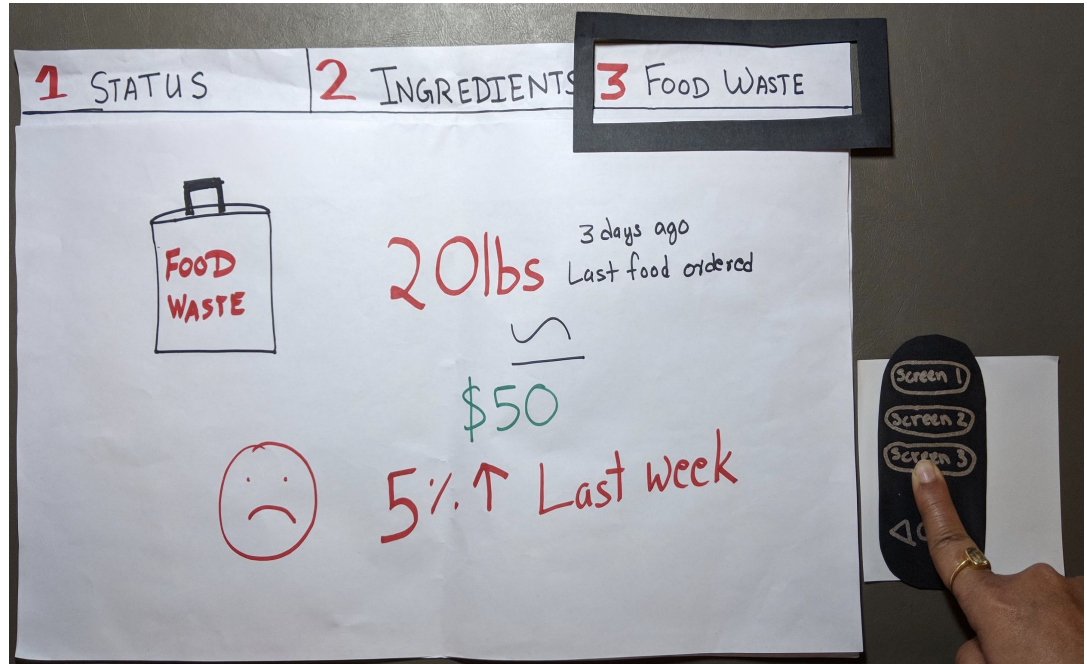 1 STATUS
2 INGREDIENTS
3 FOOD WASTE
FOOD
WASTE
20lbs
3 days ago
Last food ordered
$50
5% ↑ Last week
Screen 1
Screen 2
Screen 3